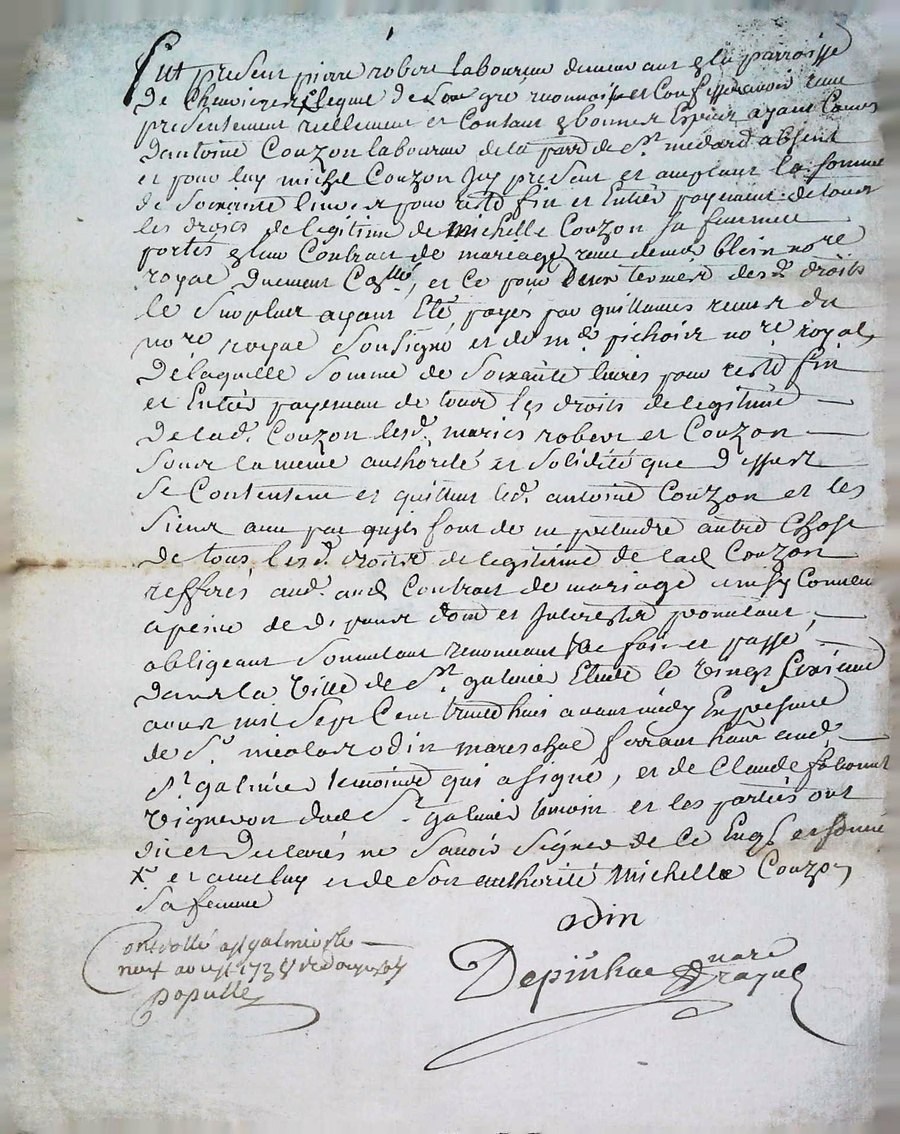 Fut present pierre robert laboureur demeurant en la parroisse
de Chevrieres lequel de son gré reconnoist et Confesse avoir reçu
presentement reellement et Contant en bonnes Especes ayant Cours
d'antoine Couzon laboureur de la parr. de St. medard absent
et pour luy michel Couzon Icy present et acceptant la somme
de soixante livres pour reste fin et Entier payement de tous
les droits de legitime de Michelle Couzon sa femme
portés en leur Contract de mariage receu de me. blein nore
royal duement Collé, et Ce pour deux termes desd. droits
le surplus ayant Eté payés par quittances reçues du
nore royal soussigné et de me. pichoir nore royal,
de laquelle somme de soixante livres pour reste fin
et Entier payemen de tous les droits de legitime
de lad. Couzon lesd. mariés robert et Couzon
sous la meme authorité et solidité que dessus
se Contentent et quittent led. antoine Couzon et les
siens avec pact de ne plus rien demander autre Chose
de tous lesd. droits de legitime de lad Couzon
refferés aud. Contract de mariage ainsy Convenu
a peine de d. pans dom et Interests promettant,
obligeant soumettant renonceant &c fait et passé,
dans la Ville de St. galmier Etude le vingt sixieme
aoust mil sept Cent trente huit avant midy En presence
de Sr. nicolas odin mareschal ferrant habt aud.
St. galmier temoins qui a signé, et de Claude
vigneron dud St. galmier temoin et les parties ont
dit et declarés ne savoir signer de Ce Enqs et sommé
x et avec luy et de son authorité Michelle Couzon
sa femme
odin
Depinhac nore royal
Controllé a st galmier le
neuf aoust 1738 reçu douze sols
populle